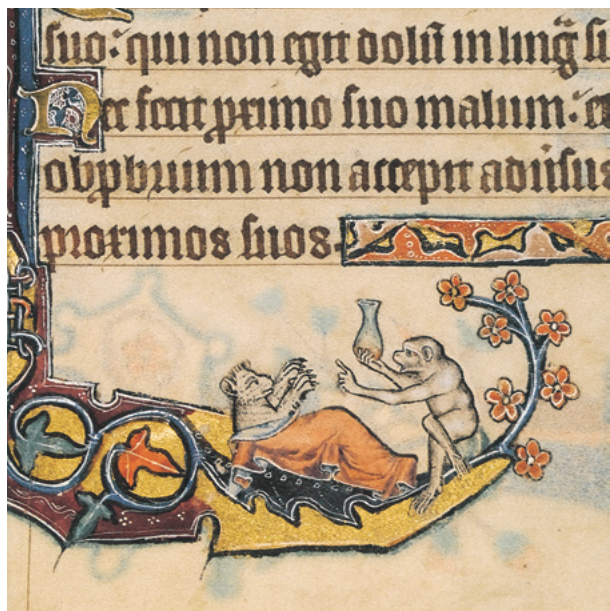 suo: qui non egit dolū in ling̃ su
Nec fecit ꝓximo suo malum: et
obꝓbrium non accepit adũsus
proximos suos.